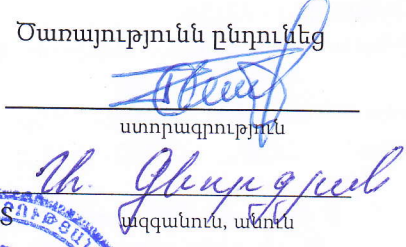 Ծառայությունն ընդունեց
ստորագրություն
Ն. Գևորգյան
ազգանուն, անուն